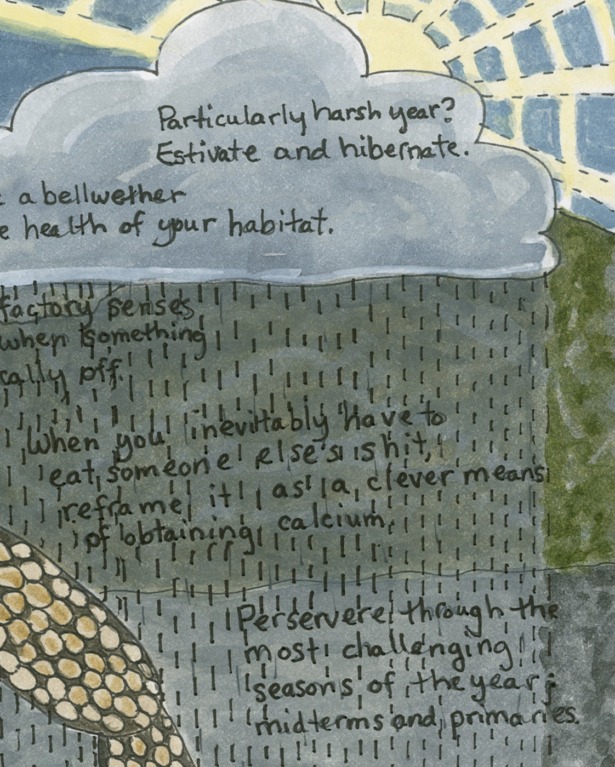 Particularly harsh year?
Estivate and hibernate.
a bellwether
health of your habitat.
factory senses
when something
cally off.
When you inevitably have to
eat someone else's shit,
reframe it as a clever means
of obtaining calcium.
Perservere through the
most challenging
seasons of the year:
midterms and primaries.